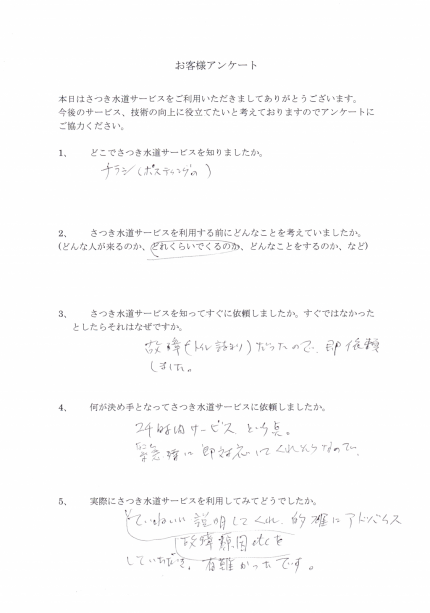 お客様アンケート
本日はさつき水道サービスをご利用いただきましてありがとうございます。
今後のサービス、技術の向上に役立てたいと考えておりますのでアンケートに
ご協力ください。
1、 どこでさつき水道サービスを知りましたか。
チラシ(ポスティングの)
2、 さつき水道サービスを利用する前にどんなことを考えていましたか。
(どんな人が来るのか、どれくらいでくるのか、どんなことをするのか、など)
3、 さつき水道サービスを知ってすぐに依頼しましたか。すぐではなかった
としたらそれはなぜですか。
故障(トイレ詰り)だったので、即依頼
しました。
4、 何が決め手となってさつき水道サービスに依頼しましたか。
24時間サービスという点。
緊急時に即対応してくれそうなので。
5、 実際にさつき水道サービスを利用してみてどうでしたか。
ていねいに説明してくれ、的確にアドバイス
故障原因etcを
していただき、有難かったです。